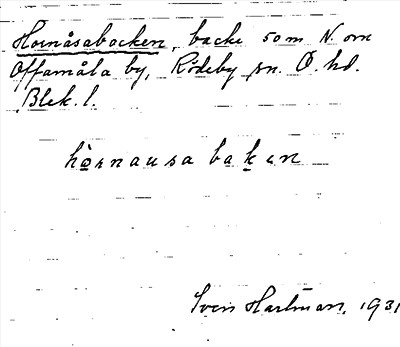 Hornåsabacken, backe 50 m N. om
Offamåla by, Rödeby sn. Ö. hd.
Blek. l.
hòrnausa baken
Sven Hartman, 1931